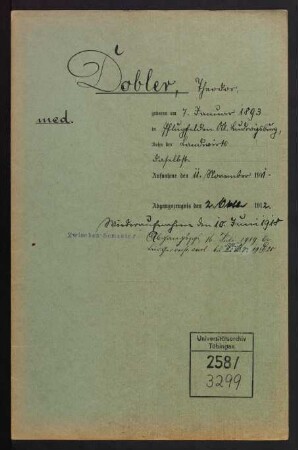 Dobler, Theodor.
med.
geboren am 7. Januar 1893
in Pflugfelden OA. Ludwigsburg,
Sohn des Landwirts
daselbst.
Aufnahme den 11. November 1911.
Abgangszeugnis den 2. 1912.
Wiederaufnahme den 10. Juni 1918
1919
Universitätsarchiv
Tübingen
258/
3299